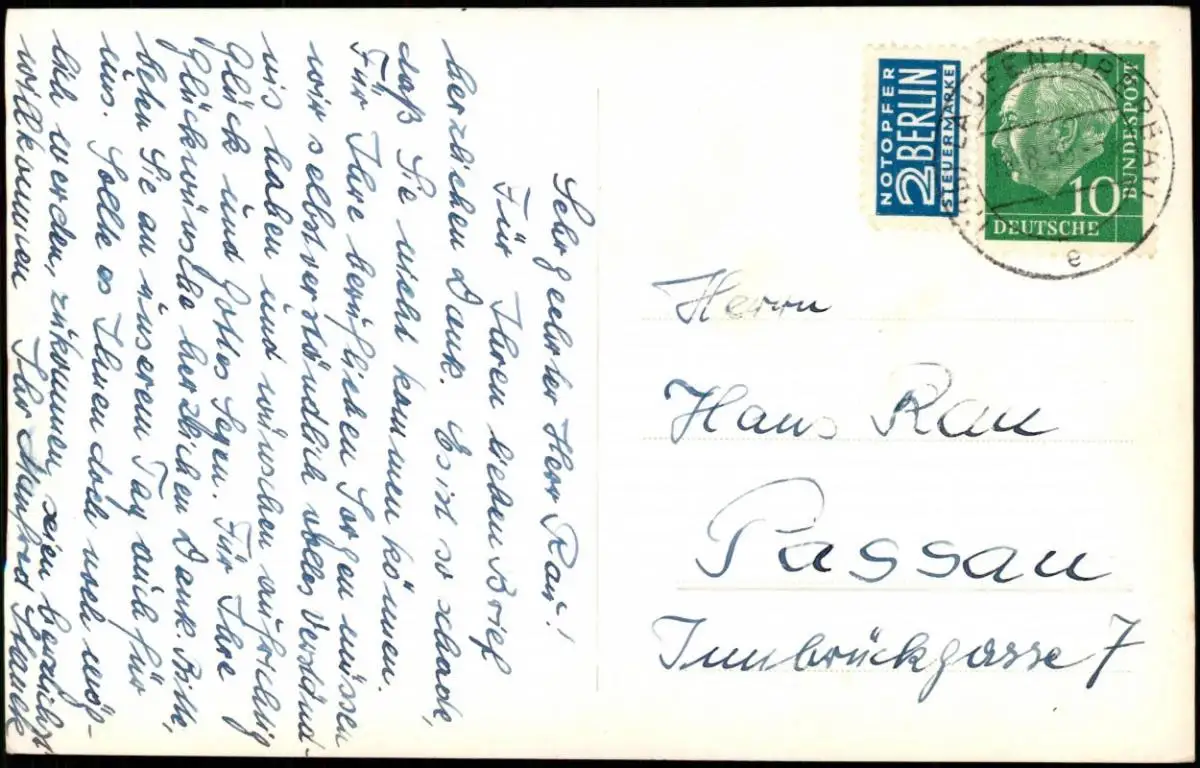 Sehr geehrter Herr Rau!
Für Ihren lieben Brief
herzlichen Dank. Es ist so schade,
daß Sie nicht kommen können.
Für Ihre beruflichen Sorgen müssen
wir selbstverständlich volles Verständ-
nis haben und wünschen aufrichtig
Glück und Gottes Segen. Für Ihre
Glückwünsche herzlichen Dank. Bitte,
beten Sie an unserem Tag auch für
uns. Sollte es Ihnen doch noch mög-
lich werden, zu kommen, herzlichst
willkommen Ihr Manfred
NOTOPFER
2 BERLIN
STEUERMARKE
BUNDESPOST
10
DEUTSCHE
a
Herrn
Hans Rau
Passau
Innbrückgasse 7